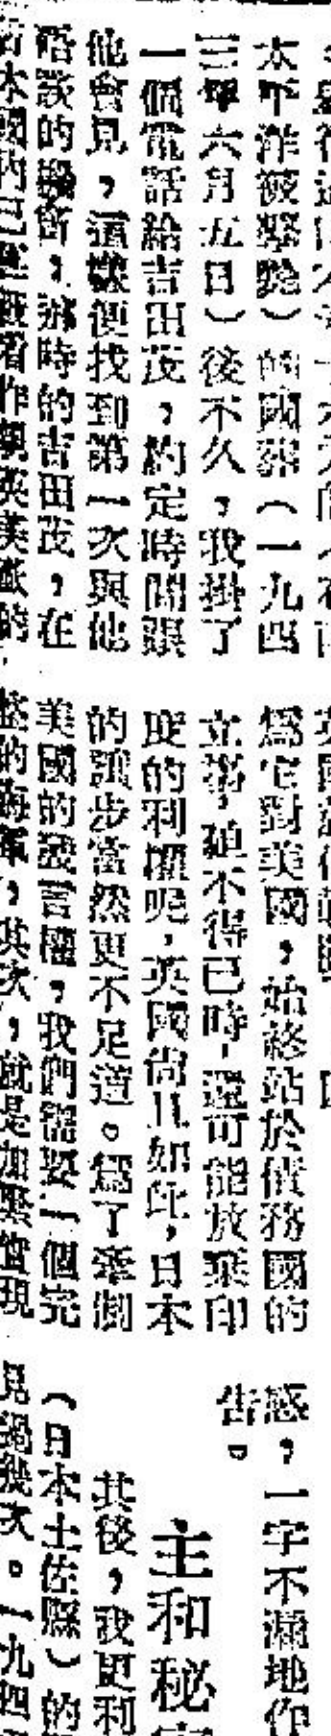 太平洋被擊斃）的國葬（一九四
三年六月五日）後不久，我掛了
一個電話給吉田茂，約定時間跟
他會見，這樣便找到第一次與他
談的機會，那時的吉田茂，在
為它對美國，始終站於債務國的
立場，迫不得已時，還可能放棄印
度的利權呢，英國尚且如此，日本
的讓步當然更不足道。為了牽制
美國的發言權，我們需要一個完
整的海軍，其次，就是加緊實現
惑，一字不漏地作
告。
主和秘
其後，我更利
（日本土佐縣）的
見過幾次。一九四